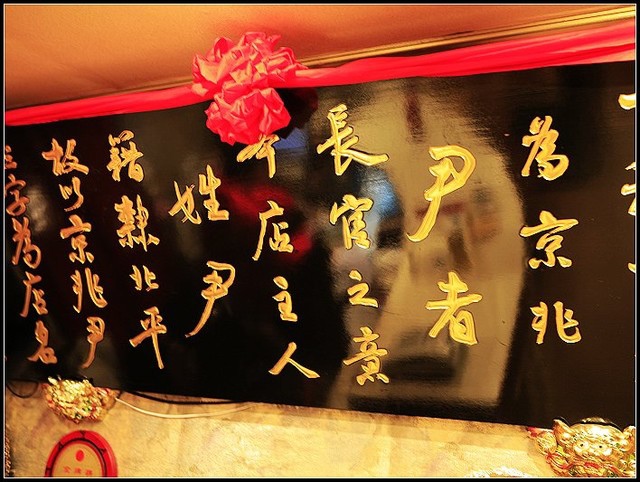 為京兆
尹者
長官之意
本店主人
姓尹
籍隸北平
故以京兆尹
三字為店名